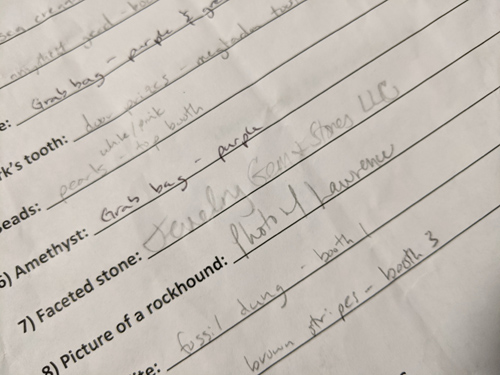 amethyst geod - boo
e: Grab bag - purple & gre
rk's tooth: door prizes - megladon too
white/pink
eads: pearls - top booth
6) Amethyst: Grab bag - purple
7) Faceted stone: Jewelry Gem & Stones LLC
8) Picture of a rockhound: Photo of Lawrence
ite: fossil dung - booth 1
brown stripes - booth 3